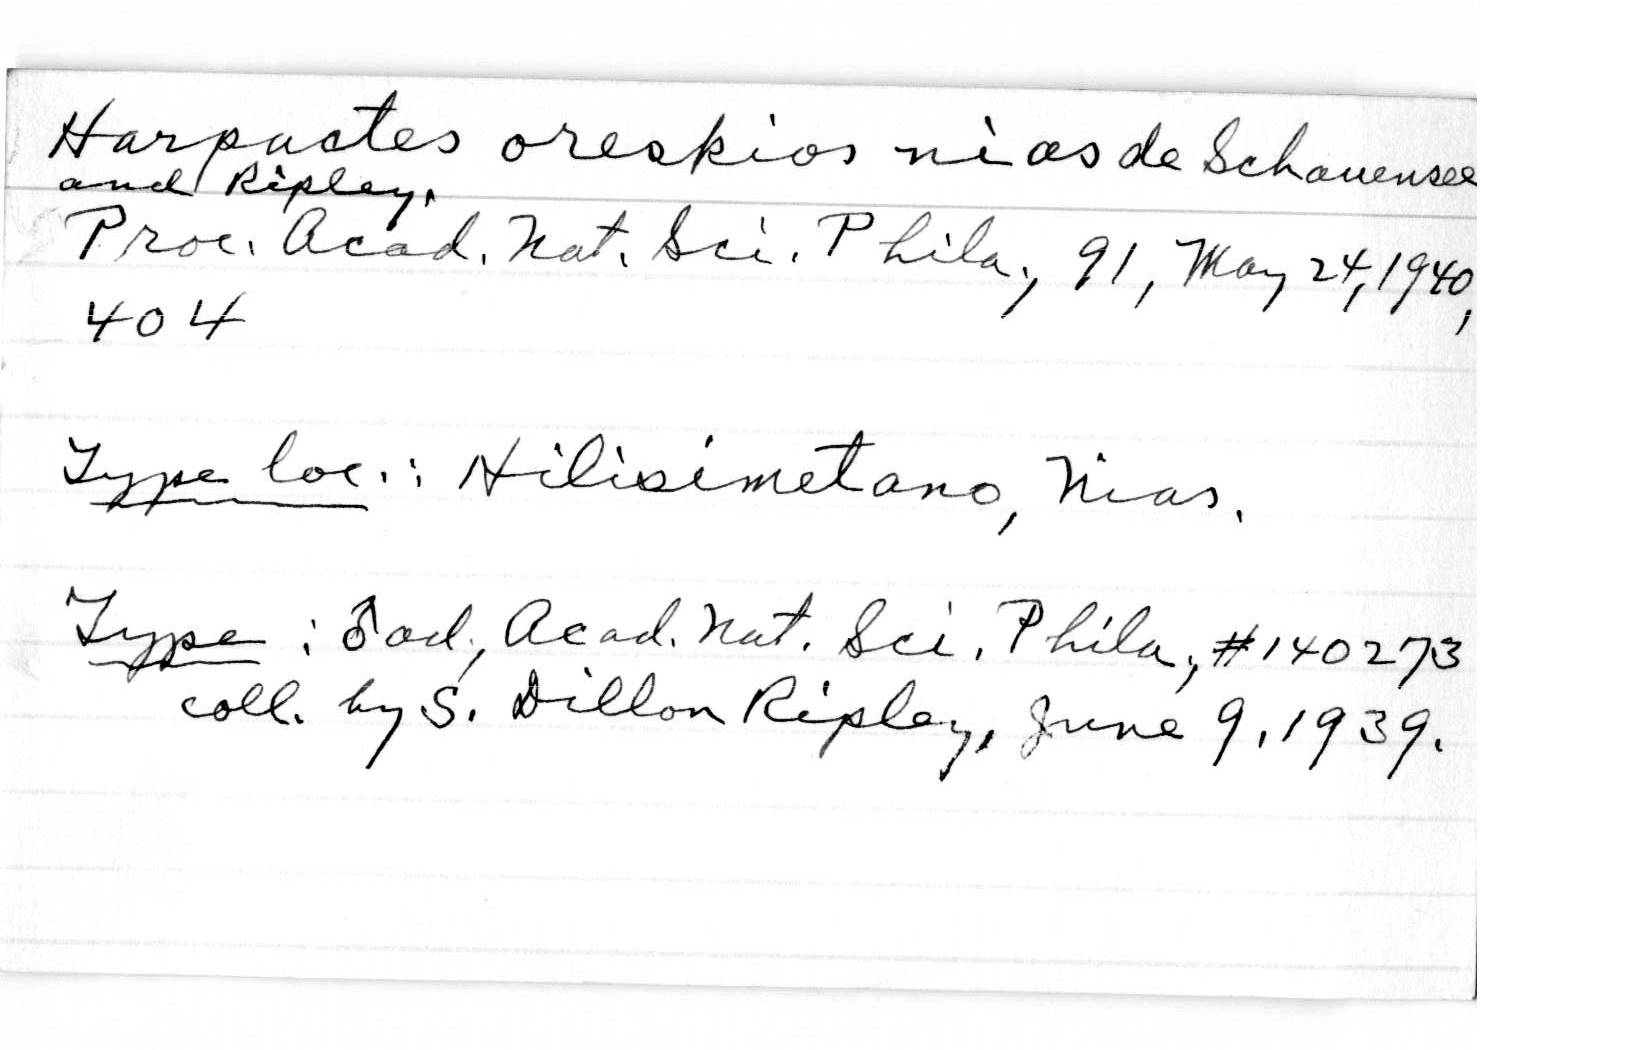 Harpactes oreskios nias de Schauensee
and Ripley.
Proc. Acad. Nat. Sci. Phila., 91, May 24, 1940,
404
Type loc.: Hilisimetano, Nias.
Type: ♂ ad., Acad. Nat. Sci. Phila., #140273
coll. by S. Dillon Ripley, June 9, 1939.